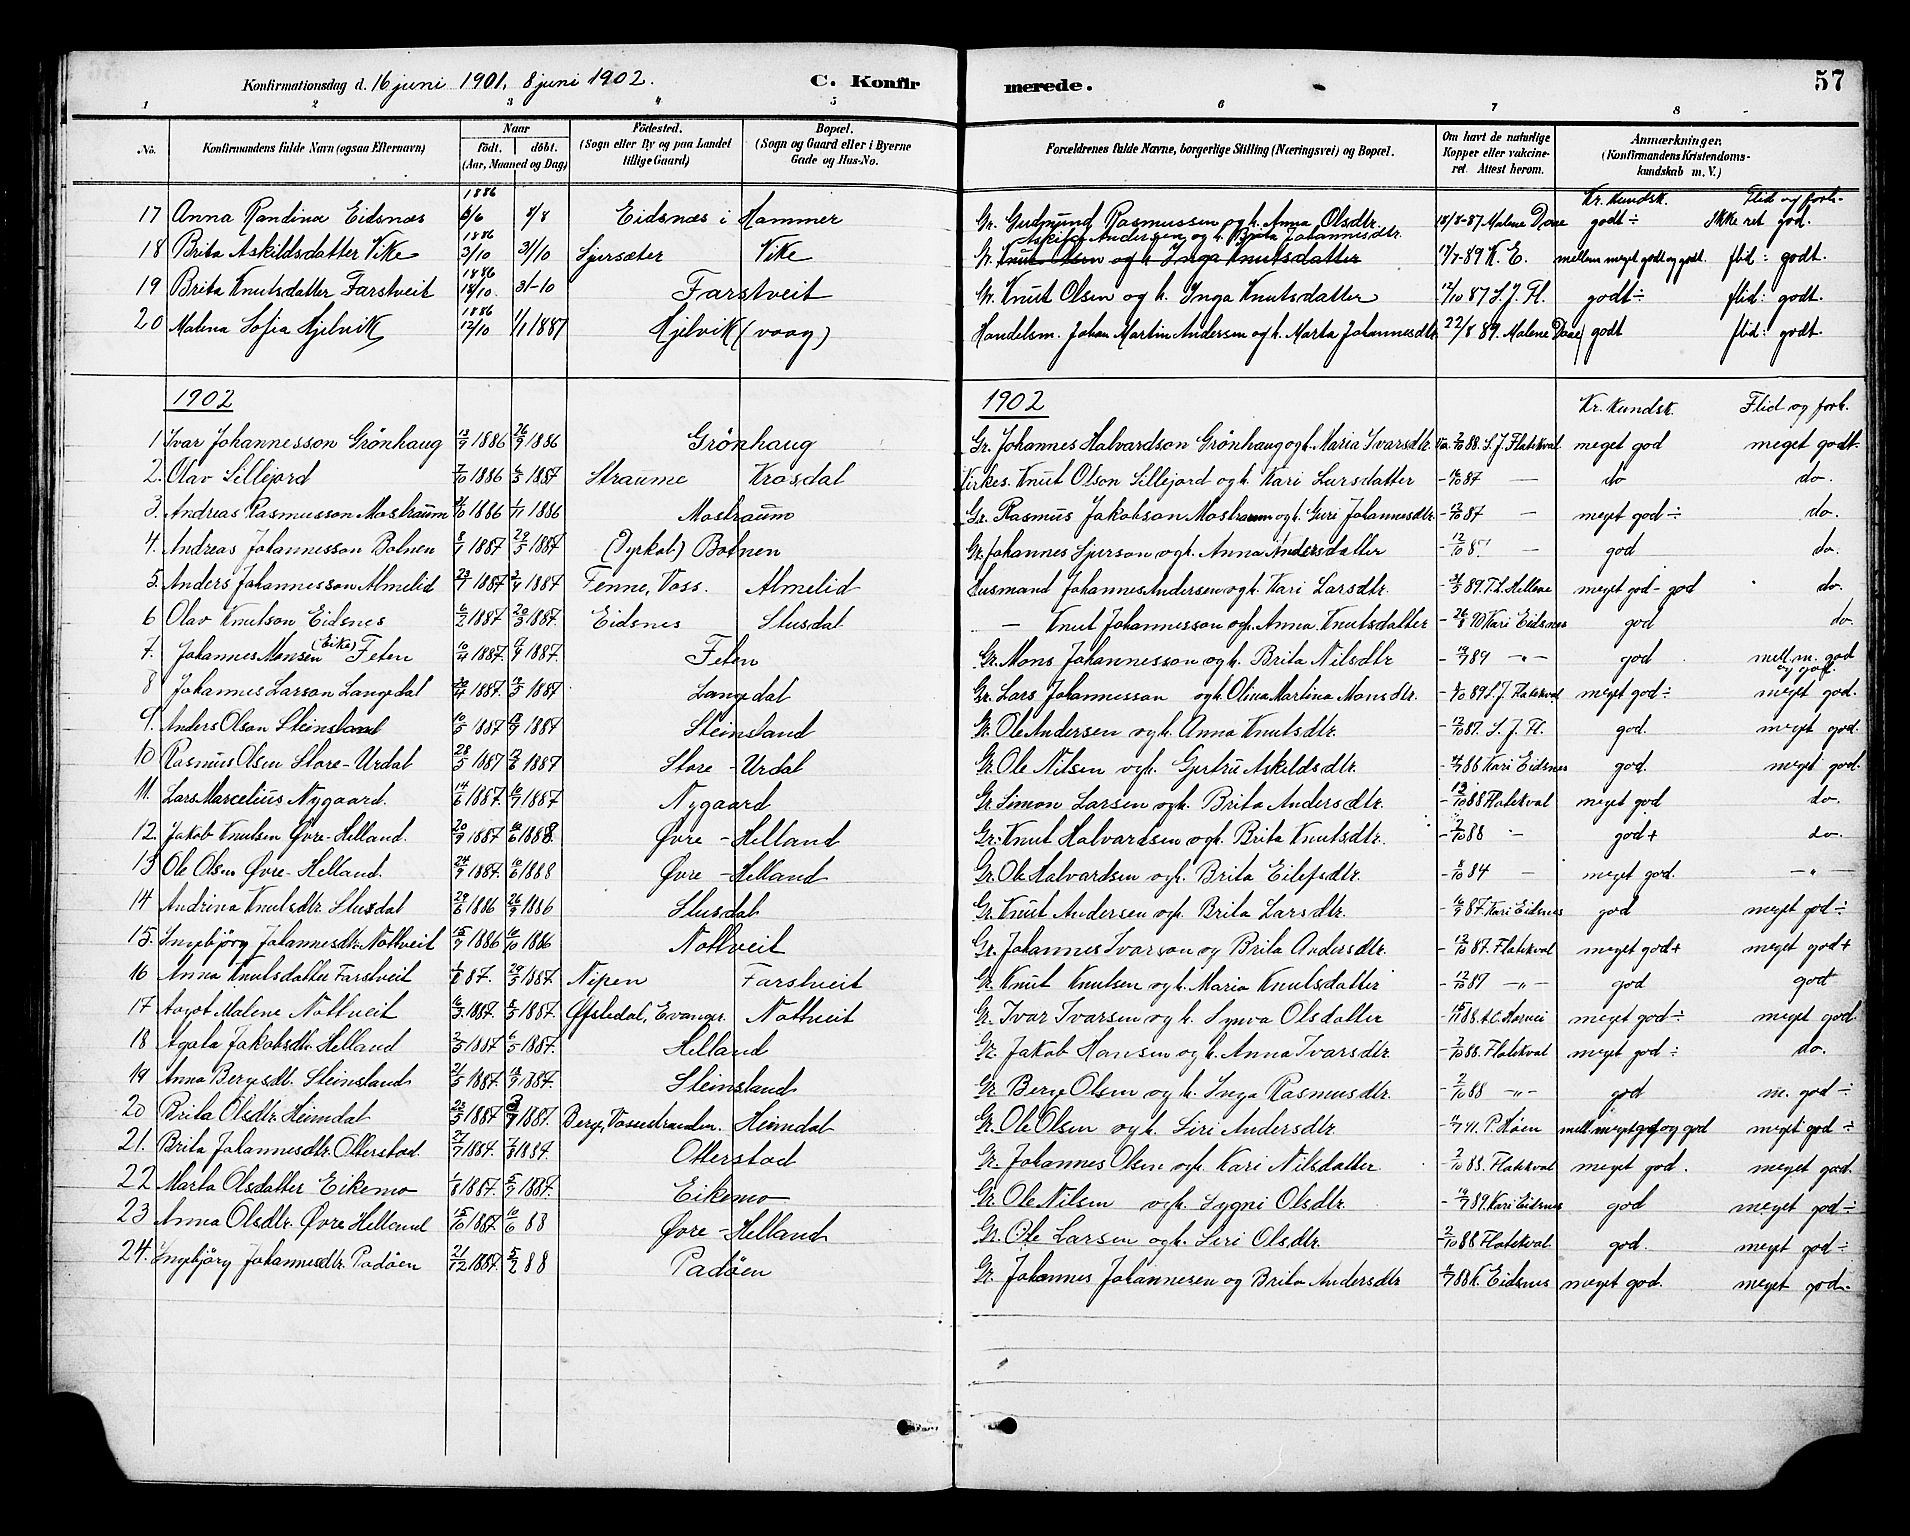 Konfirmationsdag d. 16 juni 1901, 8 juni 1902. C. Konfir merede. 57
1 2 3 4 5 6 7 8
No. Konfirmandens fulde Navn (ogsaa Efternavn) Naar født. døbt. (Aar, Maaned og Dag) Fødested. (Sogn eller By og paa Landet tillige Gaard) Bopæl. (Sogn og Gaard eller i Byerne Gade og Hus-No. Forældrenes fulde Navne, borgerlige Stilling (Næringsvei) og Bopæl. Om havt de naturlige Kopper eller vakcineret. Attest herom. Anmærkninger. (Konfirmandens Kristendomskundskab m. V.)
Kr. kundsk. Flid og forh.
17 Anna Randina Eidsnæs 1886 8/8 Eidsnæs i Hammer Gr. Gudmund Rasmussen og h. Anna Olsdtr. 18/8-87 Malene Daae godt ÷ Ikke ret god.
18 Brita Askildsdatter Vike 1886 3/10 31/10 Sjursæter Vike Askild Andersen og h. Brita Johannesdtr. Gr. Knut Olsen og h. Inga Knutsdatter 17/7-89 K. E. mellem meget godt og godt flid: godt.
19 Brita Knutsdatter Farstveit 1886 18/10 31-10 Farstveit Gr. Knut Olsen og h. Inga Knutsdatter 12/10 87 S. J. Fl. godt ÷ flid: godt.
20 Malena Sofia Hjelvik 1886 12/10 1/1 1887 Hjelvik (vaag) Handelsm. Johan Martin Andersen og h. Marta Johannesdtr. 22/8 89. Malene Daae godt flid: godt.
1902 1902 Kr. kundsk. Flid og forh.
1 Ivar Johannesson Grönhaug 13/9 1886 26/9 1886 Grönhaug Gr. Johannes Halvardson Grönhaug og h. Maria Ivarsdtr. 2/10 88. S. J. Flatekval meget god meget godt
2. Olav Lillejord 7/10 1886 6/3 1887 Straume Krosdal Kirkes. Knut Olson Lillejord og h. Kari Larsdatter 87 — do do.
3. Andreas Rasmusson Mostraum 1886 1/11 1886 Mostraum Gr. Rasmus Jakobson Mostraum og h. Guri Johannesdtr. - 12/10 87 — meget god ÷ do.
4. Andreas Johannesson Botnen 8/1 1887 29/5 1887 (Dyrkol.) Botnen Gr. Johannes Sjurson og h. Anna Andersdatter - 12/10 8 — god do.
5. Anders Johannesson Almelid 23/1 1887 3/4 1887 Tenne, Voss. Almelid Husmand Johannes Andersen og h. Kari Larsdtr. 89. T. L. Hellene meget god - god do.
6 Olav Knutson Eidsnes 6/2 1887 20/3 1887. Eidsnes Stusdal — Knut Johannesson og h. Anna Knutsdatter - 26/8 90 Kari Eidsnes god do.
7. Johannes Monsen (Eike) Feten 10/4 1887. 1887. Feten Gr. Mons Johannesson og h. Brita Nilsdtr 89 -"- god mell. m. god og god.
8 Johannes Larson Langedal 1887. 1887 Langedal Gr. Lars Johannesson og h. Olina Martina Monsdtr. 89 S. J. Flatekval meget god ÷ meget god.
9. Anders Olson Steinsland 10/5 1887 1887 Steinsland Gr. Ole Andersen og h. Anna Knutsdtr. - 12/10 87. S. J. Fl. god. meget god.
10 Rasmus Olsen Store-Urdal 28/5 1887 12/6 1887 Store - Urdal Gr. Ole Nilsen og h. Gjertru Askildsdtr. 88 Kari Eidsnes god. meget god.
11. Lars Marcelius Nygaard. 14/6 1887. 1887 Nygaard Gr. Simon Larsen og h. Brita Andersdtr. 88 Flatekval meget god do.
12. Jakob Knutsen Øvre-Helland. 20/9 1887 10/6 1888. Øvre - Helland Gr. Knut Halvardsen og h. Brita Knutsdtr. - 2/10 88 - god + do.
13 Ole Olsen Øvre-Helland. 24/9 1887. 10/6 1888 Øvre - Helland Gr. Ole Halvardsen og h. Brita Eilefsdtr. 84 — meget god. -"-
14 Andrina Knutsdtr. Stusdal 29/6 1886 26/9 1886 Stusdal Gr. Knut Andersen og h. Brita Larsdtr. 87. Kari Eidsnes god meget god ÷
15. Ingebjörg Johannesdtr. Nottveit 15/7 1886 10/10 1886 Nottveit Gr. Johannes Ivarson og Brita Andersdtr. - 12/10 87. Flatekval meget god + meget god +
16 Anna Knutsdatter Farstveit 87. 1887. Nipen Farstveit Gr. Knut Knutsen og h. Maria Knutsdatter - 12/10 87 -"- god god
17 Malene Nottveit 16/3 1887. 1887. Øfstedal, Evanger. Nottveit Gr. Ivar Ivarsen og h. Synva Olsdatter 88. meget god ÷ meget god.
18 Agata Jakobsdtr. Helland 1887 1887. Helland Gr. Jakob Hansen og h. Anna Ivarsdtr. - 2/10 88. Flatekval meget god ÷ do.
19 Anna Bergesdtr. Steinsland 21/5 1887. 1887. Steinsland Gr. Berge Olsen og h. Inga Rasmusdtr. - 2/10 88 -"- god m. god ÷
20 Brita Olsdtr. Heimdal 1887 1887. Berge, Vossestranden. Heimdal Gr. Ole Olsen og h. Siri Andersdtr. 91. P. Møen mell. meget god og god meget god ÷
21. Brita Johannesdtr. Otterstad. 1887. 1887. Otterstad Gr. Johannes Olsen og h. Kari Nilsdatter - 2/10 88. Flatekval meget god. meget god.
22 Marta Olsdatter Eikemo 1/8 1887. 1887. Eikemo Gr. Ole Nilsen og h. Sygni Olsdtr. 89. Kari Eidsnes god meget god ÷
23 Anna Olsdtr. Øvre Helland 15/10 1887. 10/6 88 Øvre - Helland Gr. Ole Larsen og h. Siri Olsdtr. - 2/10 88 Flatekval god. meget god ÷
24. Ingebjörg Johannesdtr. Padöen 21/12 1887. 5/2 88 Padöen Gr. Johannes Johannesen og Brita Andersdtr 88 K. Eidsnes meget god. meget god.